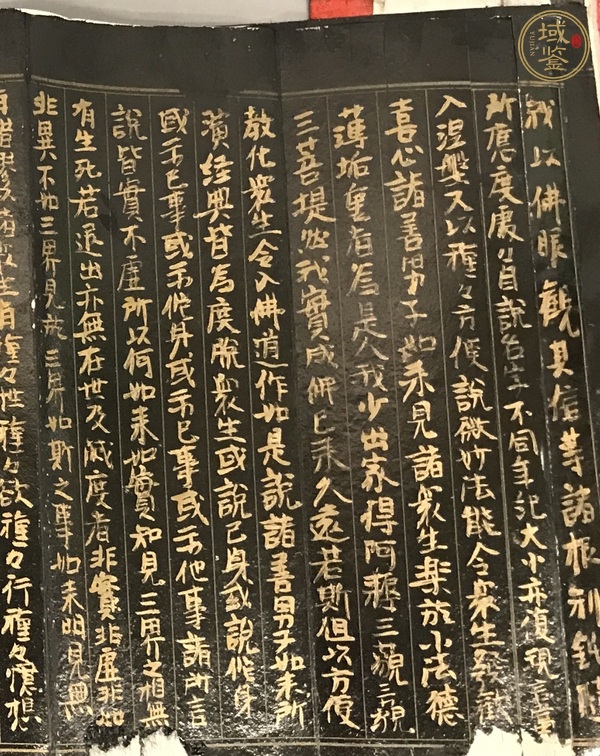 我以佛眼觀其信等諸根利鈍隨
所應度處々自說名字不同年紀大小亦復現言當
入涅槃又以種々方便說微妙法能令衆生發歡
喜心諸善男子如来見諸衆生樂於小法德
薄垢重者為是人我少出家得阿耨三藐三
三菩提然我實成佛已来久遠若斯但以方便
教化衆生令入佛道作如是說諸善男子如来所
演經典皆為度脫衆生或說己身或說他身
或示己事或示他身或示己事或示他事諸所言
說皆實不虛所以何如来如實知見三界之相無
有生死若退出亦無在世及滅度者非實非虛非如
非異不如三界見於三界如斯之事如来明見無
有錯謬以諸衆生有種々性種々欲種々行種々憶想
域鉴
YUJIAN